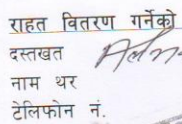 राहत वितरण गर्नेको
दस्तखत
नाम थर
टेलिफोन नं.